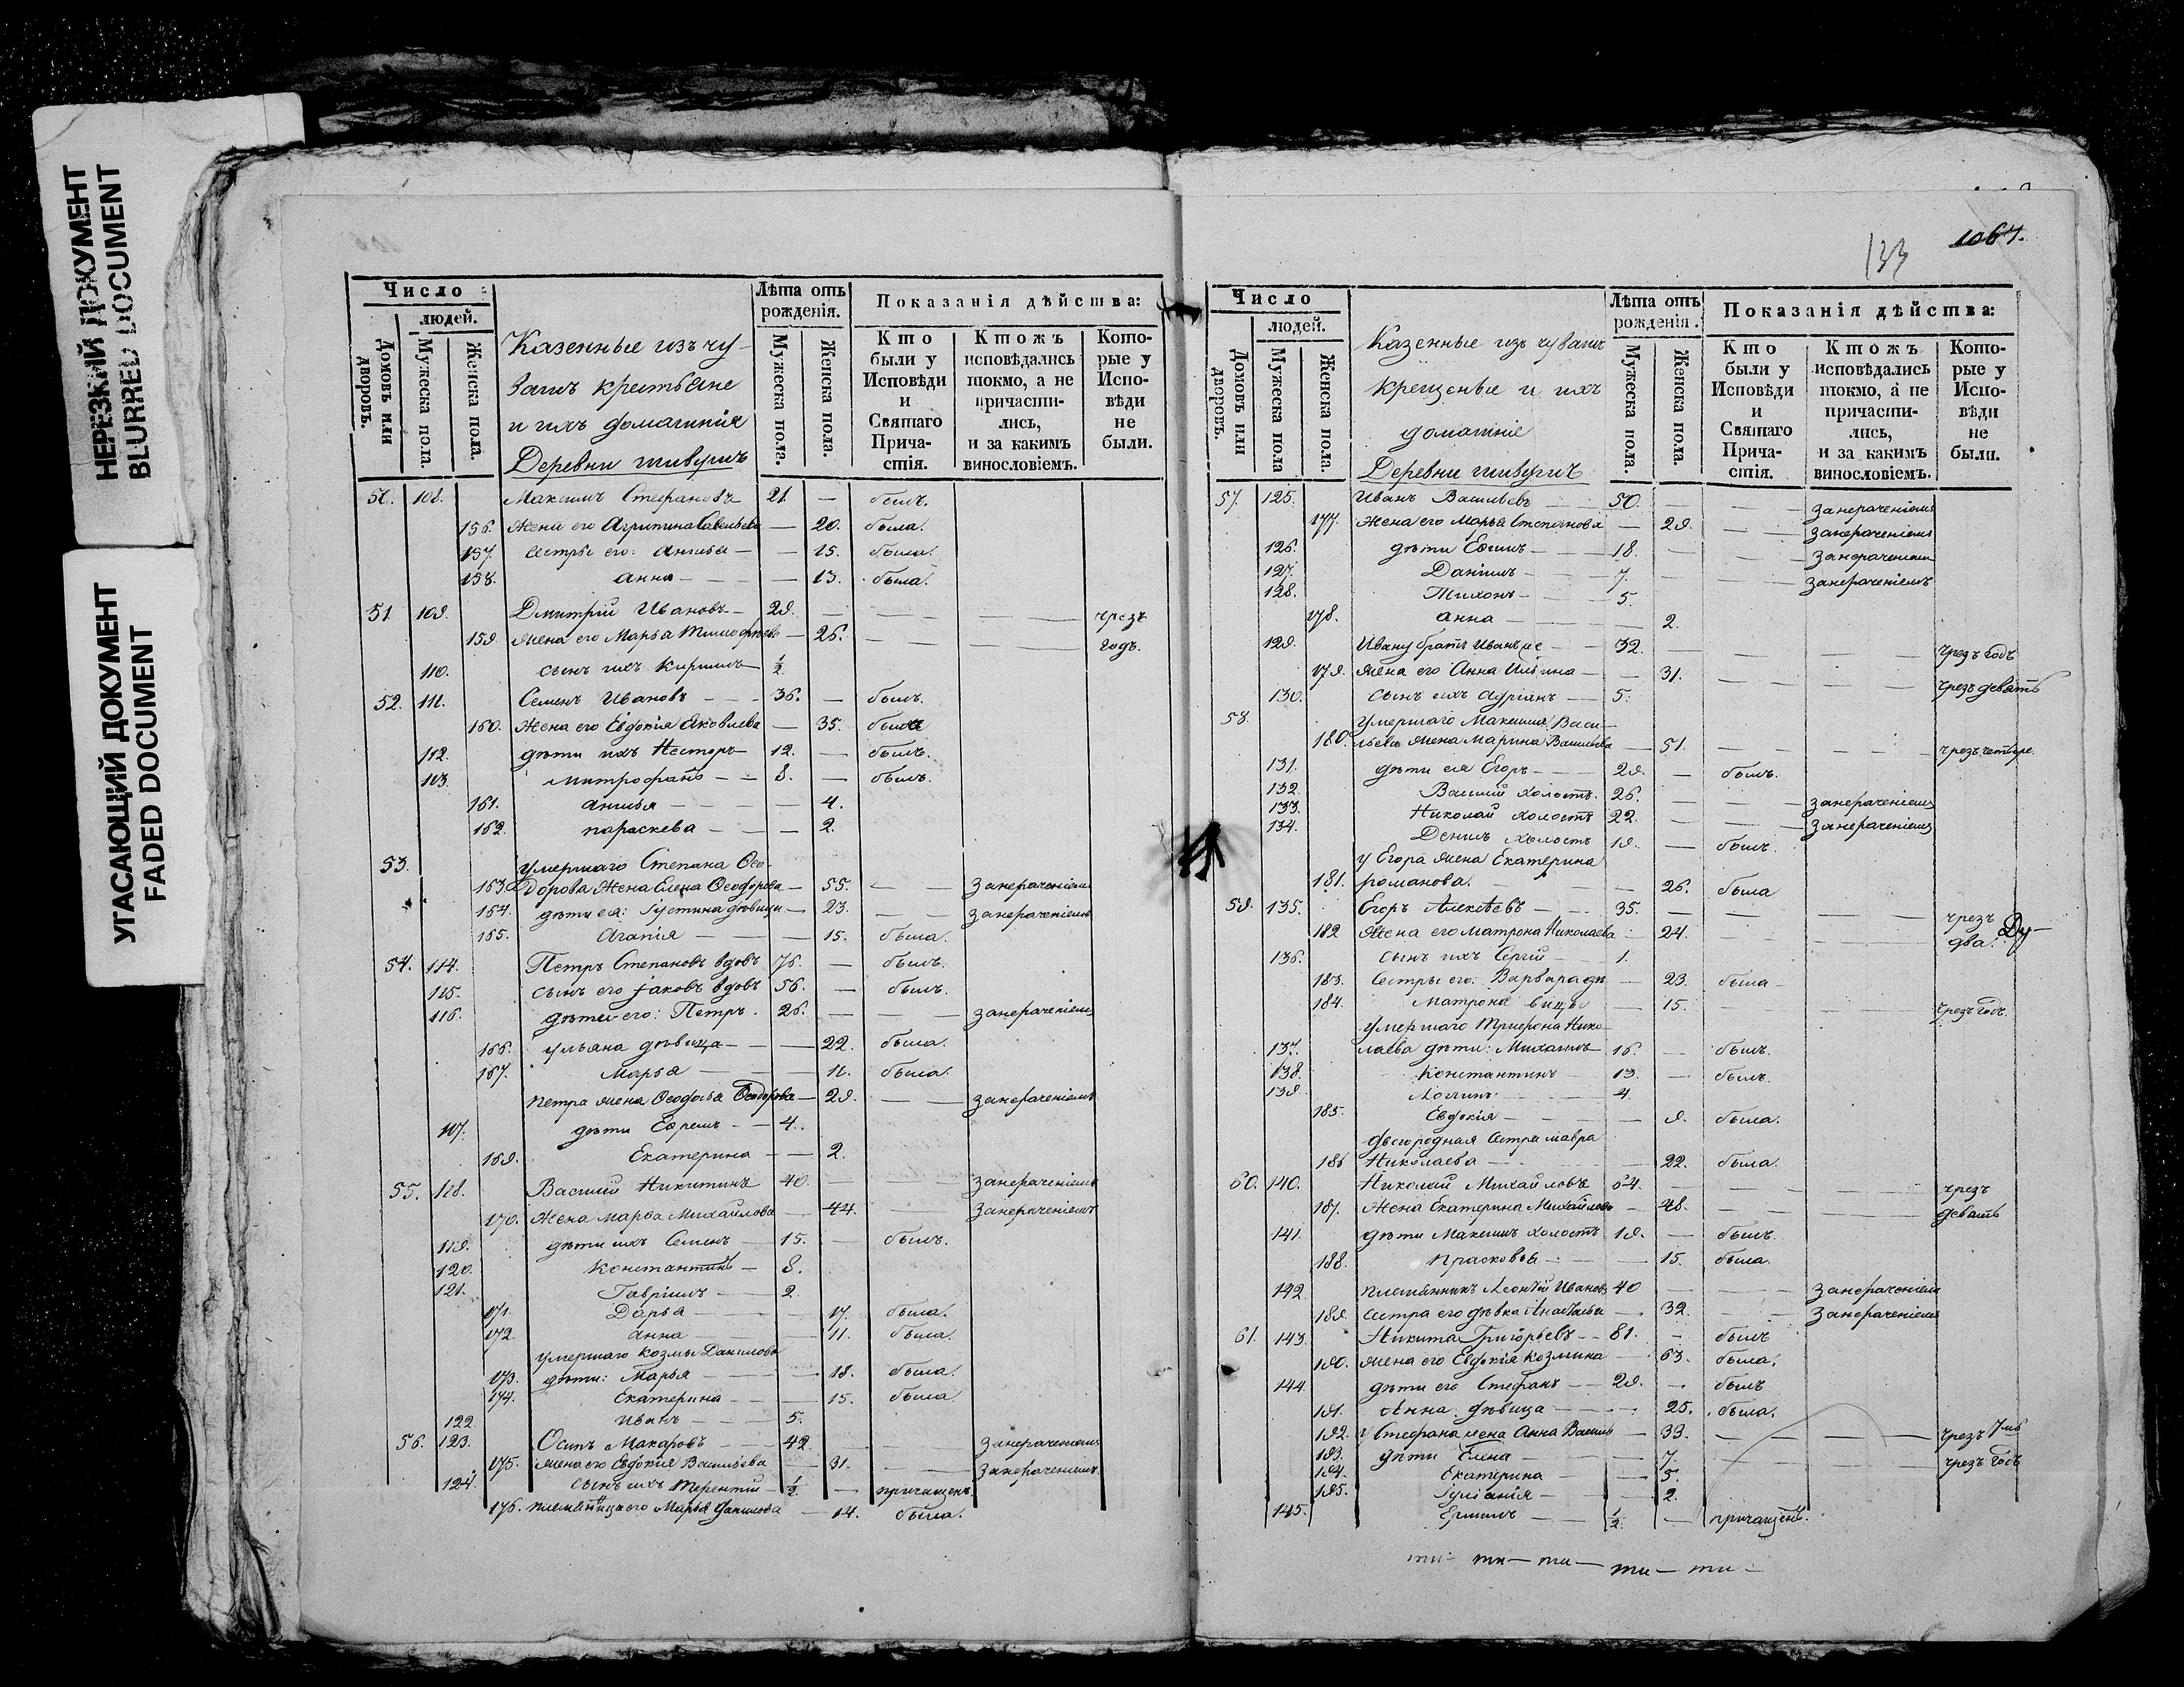 НЕРЕЗКИЙ ДОКУМЕНТ
BLURRED DOCUMENT
УГАСАЮЩИЙ ДОКУМЕНТ
FADED DOCUMENT
Число
людей.
Домовъ или дворовъ.
Мужеска пола.
Женска пола.
Казенные изъ чу-
вашъ крестьяне
и ихъ домашнія
Деревни
Лѣта отъ рожденія.
Мужеска пола.
Женска пола.
Показанія дѣйства:
Кто были у Исповѣди и Святаго Причастія.
Ктожъ исповѣдались токмо, а не причастились, и за какимъ винословіемъ.
Которые у Исповѣди не были.
50. 108. Максимъ Стефановъ 21. — былъ.
156. Жена его Агрипина Савельева — 20. была.
157. Сестры его: Анисья — — 15. была.
158. Анна — — 13. была.
51. 109. Дмитрій Ивановъ — 29. — — — чрезъ
159. Жена его Марья Тимофѣева — 26. — — — годъ.
110. сынъ ихъ Кирилъ — 1/2
52. 111. Семенъ Ивановъ — 36. — былъ.
160. Жена его Евдокія Яковлева — 35. была
112. дѣти ихъ Несторъ — 12. — былъ.
113. Митрофанъ — 8. — былъ.
161. Анисья — — 4.
162. Параскева — — 2.
53. умершаго Степана Ѳео-
163. дорова Жена Елена Ѳеодорова — 55. — занераченіемъ
164. дѣти ея: Іустина дѣвица — 23. — — занераченіемъ
165. Агапія — — 15. была.
54. 114. Петръ Степановъ вдовъ 76. — былъ.
115. сынъ его Іаковъ вдовъ 56. — былъ.
116. дѣти его: Петръ. 26. — — занераченіемъ
166. Ульяна дѣвица — — 22. была.
167. Марья — — 11. была.
Петра жена Ѳеодосья Ѳеодорова — 29. — — занераченіемъ
117. дѣти Ефремъ — 4.
169. Екатерина — — 2.
55. 118. Василій Никитинъ 40. — — занераченіемъ
170. Жена Марья Михайлова — 44. — занераченіемъ
119. дѣти ихъ Семенъ — 15. — былъ.
120. Константинъ — 8.
121. Гавріилъ — 2.
171. Дарья — — 17. была.
172. Анна — — 11. была.
умершаго Козмы Данилова
173. дѣти: Марья — — 18. была.
174. Екатерина — — 15. была.
122. Иванъ — 5.
56. 123. Осипъ Макаровъ — 42. — занераченіемъ
175. Жена его Евдокія Васильева 31. — занераченіемъ.
124. сынъ ихъ Терентій — 1/2 — причащенъ
176. племянница его Марья Данилова — 14. была.
133 1067.
Число
людей.
Домовъ или дворовъ.
Мужеска пола
Женска пола.
Казенные изъ чувашъ
крещеные и ихъ
домашніе
Деревни
Лѣта отъ рожденія.
Мужеска пола.
Женска пола.
Показанія дѣйства:
Кто были у Исповѣди и Святаго Причастія.
Ктожъ исповѣдались токмо, а не причастились, и за какимъ винословіемъ.
Которые у Исповѣди не были.
57. 125. Иванъ Васильевъ 50. — — занераченіемъ
177. Жена его Марья Степанова — 29. — занераченіемъ
126. дѣти Ефимъ — 18. — — занераченіемъ
127. Даніилъ — 7. — — занераченіемъ
128. Тихонъ — 5.
178. Анна — — 2.
129. Ивану братъ Иванъ же — 32. — — чрезъ годъ
179. Жена его Анна Ильина — — 31. — — чрезъ девять
130. сынъ ихъ Адріанъ — 5.
58. умершаго Максима Васи-
180. льева жена Марина Васильева — 51. — — чрезъ четыре
131. дѣти ея Егоръ — 29. — былъ.
132. Василій холостъ. 26. — — занераченіемъ
133. Николай холостъ 22. — — занераченіемъ
134. Денисъ холостъ 19. — былъ.
у Егора жена Екатерина
181. Романова. — — 26. была
59. 135. Егоръ Алексѣевъ — 35. — — чрезъ
182 Жена его Матрона Николаева — 24. — — два. Ду-
136. сынъ ихъ Сергій — 1.
183. Сестры его: Варвара дѣ — 23. была —
184. Матрона вицы — 15. — чрезъ годъ.
умершаго Трифона Нико-
137. лаева дѣти: Михаилъ 16. — былъ.
138. Константинъ 13. — былъ.
139. Логгинъ 4.
185. Евдокія — — 9. была.
сестра Мавра
186 Николаева — — 22. была.
60. 140. Николай Михайловъ 64. — — чрезъ
187. Жена Екатерина Михайлова — 48. — — девять
141. дѣти Максимъ холостъ 19. — былъ.
188. Прасковья — — 15. была.
142. племянникъ Леонтій Ивановъ 40 — — занераченіемъ
189. сестра его дѣвка Анастасья — 32. — занераченіемъ
61. 143. Никита Григорьевъ — 81. — былъ
190. жена его Евдокія Козмина — 63. была.
144. дѣти его Стефанъ — 29. — былъ
191. Анна дѣвица — — 25. была.
192. у Стефана жена Анна Васил — 33. — — чрезъ 7мь
193. дѣти Елена — — 7. — — чрезъ годъ
194. Екатерина — — 5.
195. Іуліанія — — 2.
145. Ермилъ — 1/2. — причащенъ.
ти — ти — ти — ти — ти —